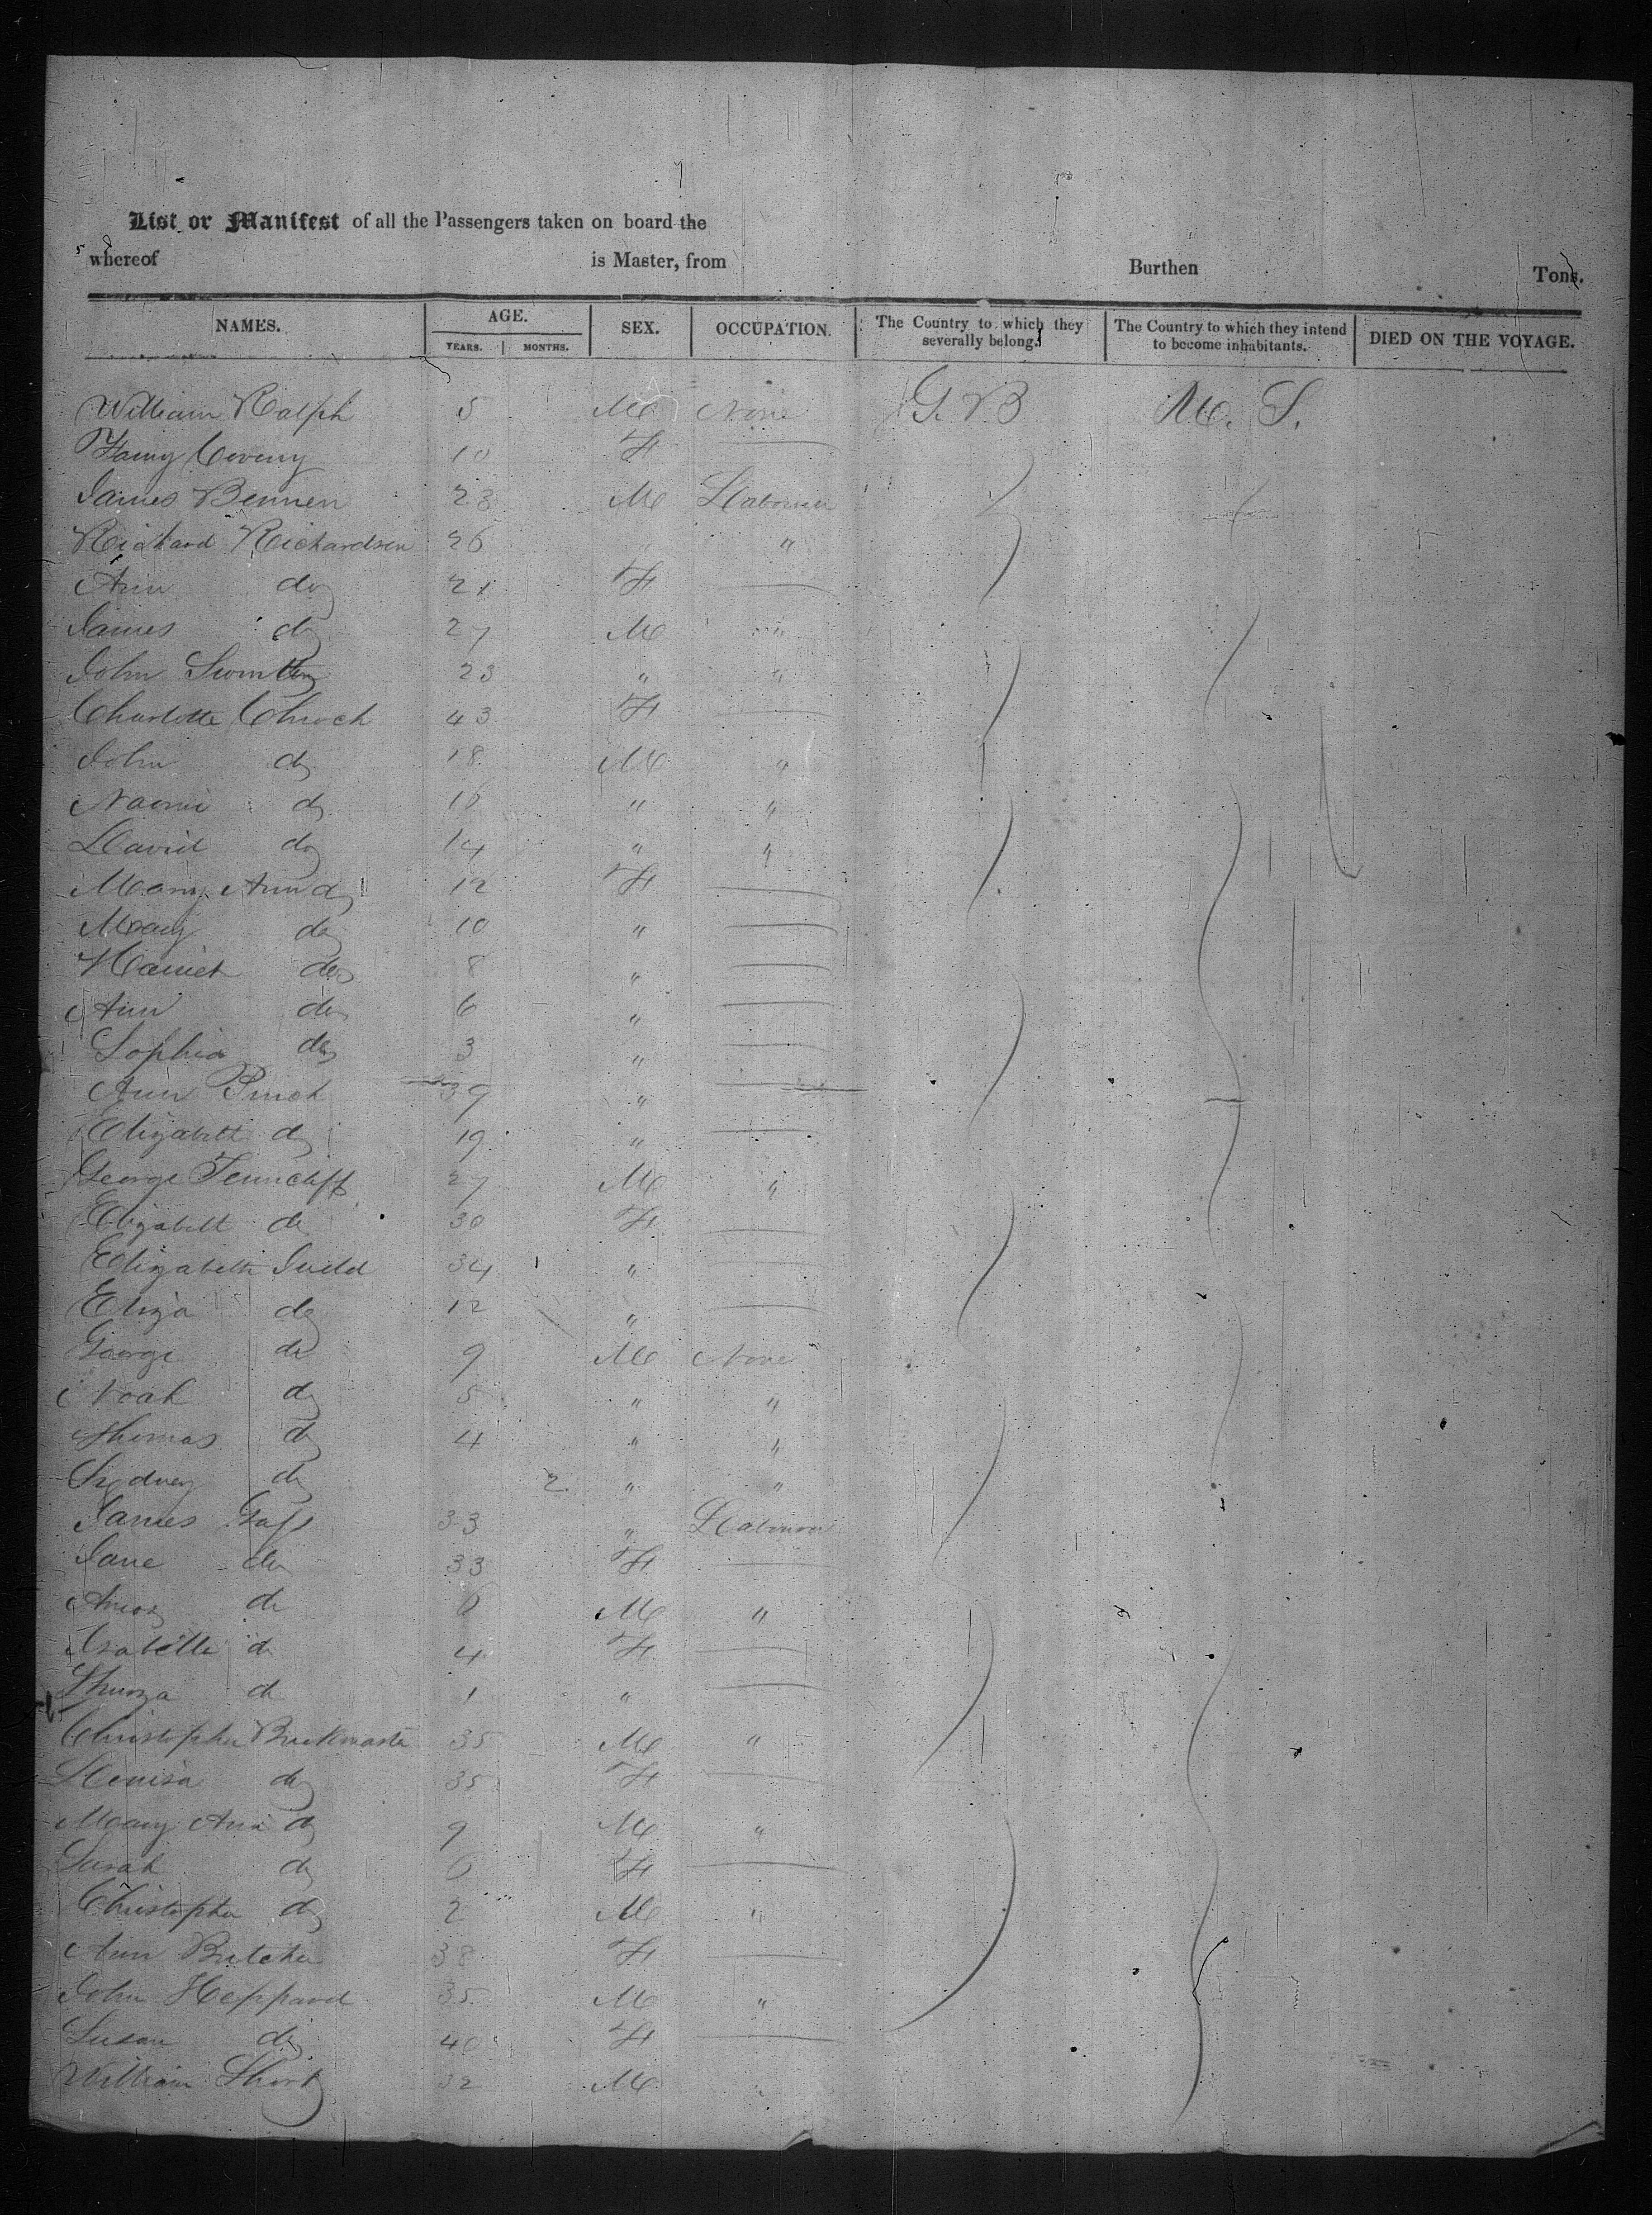 List or Manifest of all the Passengers taken on board the
whereof is Master, from Burthen Tons.
NAMES. AGE. SEX. OCCUPATION. The Country to which they severally belong. The Country to which they intend to become inhabitants. DIED ON THE VOYAGE.
YEARS. MONTHS.
William Ralph 5 M None G. B U. S.
10 F
James 23 M Labourer
Richard Richardson 26 " "
Ann do 21 F
James do 27 M "
John 23 " "
Charlotte 43 F
John do 18 M "
Naomi do 16 " "
David do 14 " "
Mary Ann do 12 F
Mary do 10 "
Harriet do 8 "
Ann do 6 "
Sophia do 3 "
Ann Pinch 39 "
Elizabeth do 19 "
George 27 M "
Elizabeth do 30 F
Elizabeth Judd 34 "
Eliza do 12 "
George do 9 M None
Noah do 5 " "
Thomas do 4 " "
Sydney do 2 " "
James 33 " Labourer
Jane do 33 F
Amos do 6 M "
Isabella do 4 F
do 1 "
Christopher Buckmaster 35 M "
Louisa do 35 F
Mary Ann do 9 M "
Sarah do 6 F
Christopher do 2 M "
Ann Butcher 38 F
John Heppard 35 M "
Susan do 40 F
William Short 32 M "